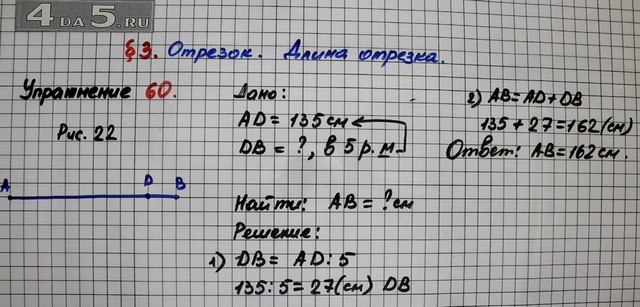 4 DA 5.RU
§3. Отрезок. Длина отрезка.
Упражнение 60.
Рис. 22
A D B
Дано:
AD = 135 см
DB = ?, в 5 р. м
Найти: AB = ? см
Решение:
1) DB = AD : 5
135 : 5 = 27 (см) DB
2) AB = AD + DB
135 + 27 = 162 (см)
Ответ: AB = 162 см.